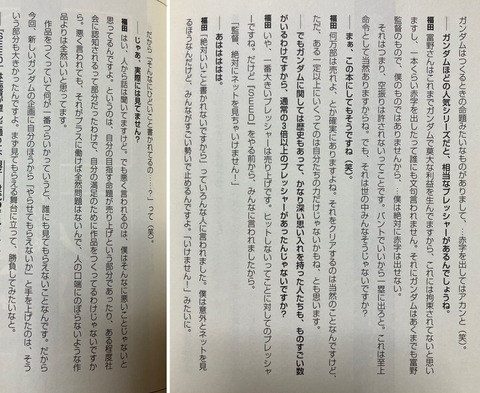 ガンダムはつくるときの命題みたいなものがありまして、…赤字を出してはアカンと（笑）。
── ガンダムほどの人気シリーズだと、相当なプレッシャーがあるんでしょうね。
福田 富野さんはこれまでガンダムで莫大な利益を生んできますから、これには拘束されてないと思い
ますし、一本くらい赤字を出したって誰にも文句言われません。それにガンダムはあくまでも富野
監督のもので、僕のものではありませんから、…僕は絶対に赤字は出せない。
つまり、空振りは許されないってことです。バントでいいから一塁に出ろと。これは至上
命令として当然ありますからね。でも、それは世の中みんなそうじゃないですか？
── まぁ、この本にしてもそうですね（笑）。
福田 何万部は売れよ、とか確実にありますよね。それをクリアするのは当然のことなんですけど、
ただ、ある一定以上にいくってのは自分たちの力だけじゃないかもね、とも思います。
── でもガンダムに関しては歴史もあって、かなり深い思い入れを持った人たちも、ものすごい数
がいるわけですから、通常の3倍以上のプレッシャーがあったんじゃないですか？
福田 いや、一番大きいプレッシャーは売り上げです。ヒットしないってことに対してのプレッシャ
ーですね。だけど『SEED』をやる前から、みんなに言われましたから。
「監督、絶対にネットを見ちゃいけません！」
── あははははは。
福田 「絶対いいこと書かれてないですから」っていろんな人に言われました。僕は意外とネットを見
るほうなんだけど、みんながすごい勢いで止めるんですよ。「いけません！」みたいに。
だから「そんなにひどいこと書かれてるの……？」って（笑）。
── じゃあ、実際には見てません？
福田 はい、人から話は聞いてますけど。でも悪く言われるのは、僕はそんなに悪いことじゃないと
思ってるんですよ。というのは、自分の目指す命題が売り上げという部分であったり、ある程度社
会に認知されるって部分だったわけで、自分の満足のために作品をつくってるわけじゃないですか
ら。悪く言われても、それがプラスに働けば全然問題はないんで、人の口端にのぼらないような作
品よりは全然いいと思ってます。
作品をつくっていて何が一番つらいかっていうと、誰にも見てもらえないことなんです。だから
今回、新しいガンダムの企画に自分のほうから「やらせてもらえないか」と手を上げたのは、そう
いう部分も大きかったんですよ。まず見てもらえる舞台に立って、勝負してみたいなと。